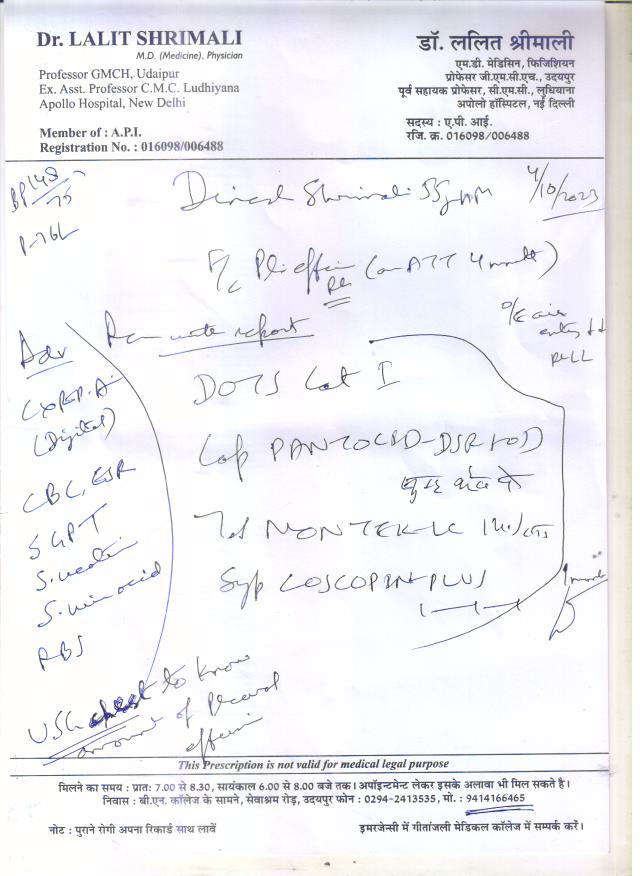 Dr. LALIT SHRIMALI
M.D. (Medicine), Physician
Professor GMCH, Udaipur
Ex. Asst. Professor C.M.C. Ludhiyana
Apollo Hospital, New Delhi
Member of : A.P.I.
Registration No. : 016098/006488
डॉ. ललित श्रीमाली
एम.डी. मेडिसिन, फिजिशियन
प्रोफेसर जी.एम.सी.एच., उदयपुर
पूर्व सहायक प्रोफेसर, सी.एम.सी., लुधियाना
अपोलो हॉस्पिटल, नई दिल्ली
सदस्य : ए.पी. आई.
रजि. क्र. 016098/006488
BP 148/75
Shrimali 55
4/10/2023
(on ATT 4 month)
report
O/E air
entry ↓↓
Adv
(Digital)
CBC, ESR
SGPT
S. uric acid
RBS
USG chest to know
amount of
DOTS Cat I
Cap PANTOCID-DSR 1 OD
Tab MONTEK-LC
Syp COSCOPIN PLUS
1 month
This Prescription is not valid for medical legal purpose
मिलने का समय : प्रातः 7.00 से 8.30, सायंकाल 6.00 से 8.00 बजे तक। अपॉइन्टमेन्ट लेकर इसके अलावा भी मिल सकते है।
निवास : बी.एन. कॉलेज के सामने, सेवाश्रम रोड़, उदयपुर फोन : 0294-2413535, मो. : 9414166465
नोट : पुराने रोगी अपना रिकार्ड साथ लावें
इमरजेन्सी में गीतांजली मेडिकल कॉलेज में सम्पर्क करें।